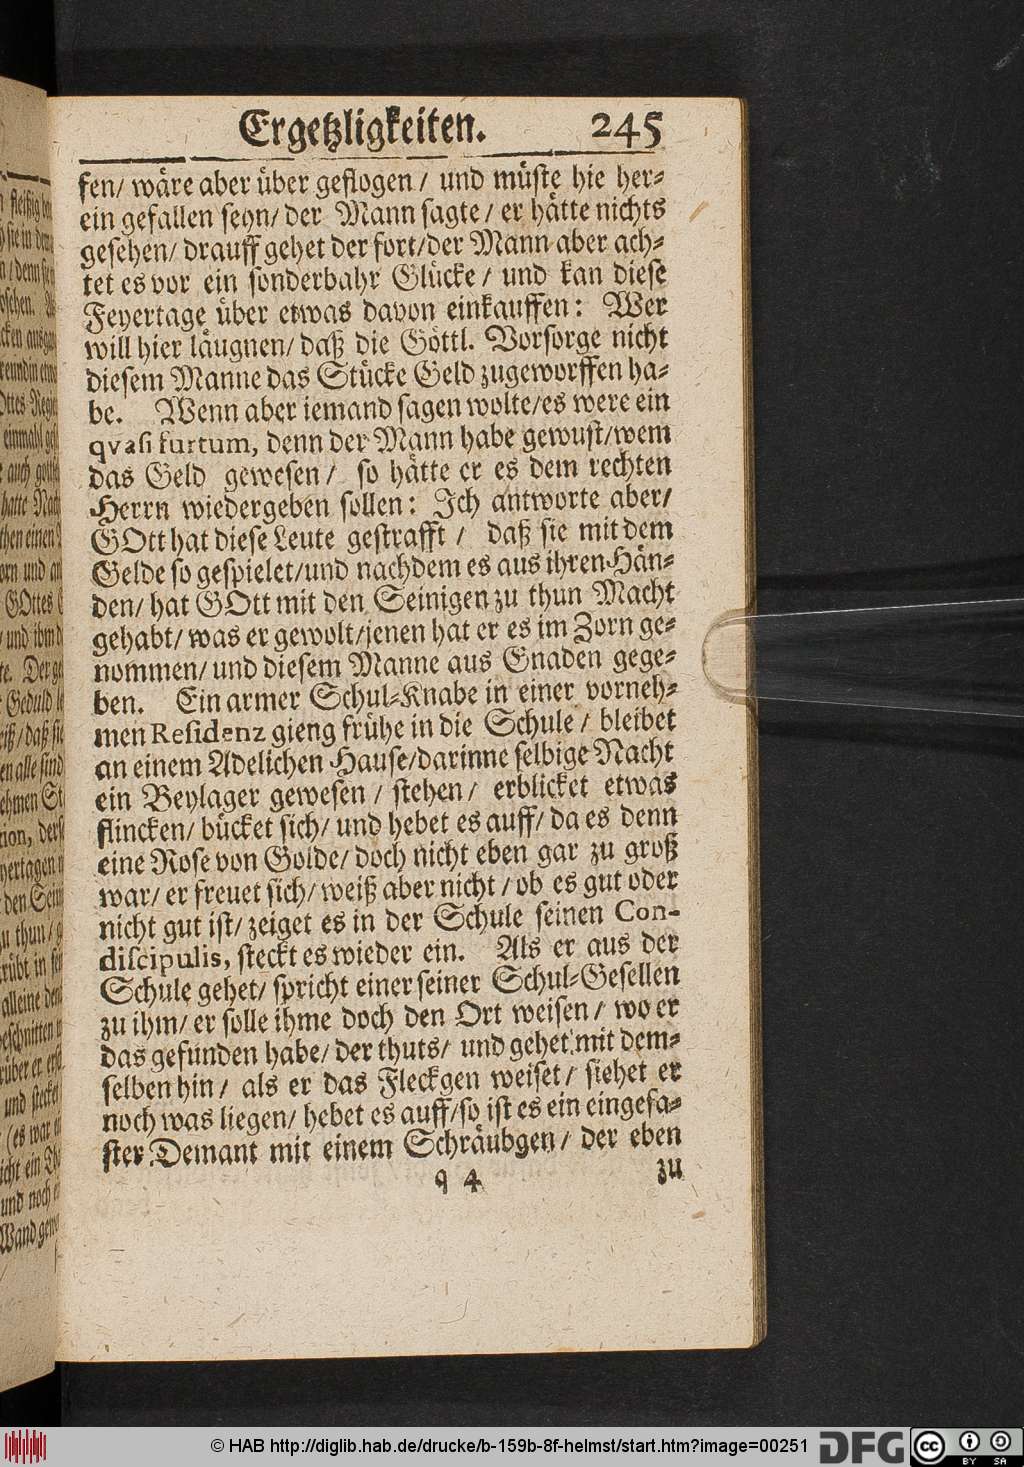 Ergetzligkeiten. 245
fen/ wäre aber über geflogen/ und müste hie her-
ein gefallen seyn/ der Mann sagte/ er hätte nichts
gesehen/ drauff gehet der fort/ der Mann aber ach-
tet es vor ein sonderbahr Glücke/ und kan diese
Feyertage über etwas davon einkauffen: Wer
will hier läugnen/ daß die Göttl. Vorsorge nicht
diesem Manne das Stücke Geld zugeworffen ha-
be. Wenn aber iemand sagen wolte/ es were ein
qvasi furtum, denn der Mann habe gewust/ wem
das Geld gewesen/ so hätte er es dem rechten
Herrn wiedergeben sollen: Ich antworte aber/
GOtt hat diese Leute gestrafft/ daß sie mit dem
Gelde so gespielet/ und nachdem es aus ihren Hän-
den/ hat GOtt mit den Seinigen zu thun Macht
gehabt/ was er gewolt/ jenen hat er es im Zorn ge-
nommen/ und diesem Manne aus Gnaden gege-
ben. Ein armer Schul-Knabe in einer vorneh-
men Residenz gieng frühe in die Schule/ bleibet
an einem Adelichen Hause/ darinne selbige Nacht
ein Beylager gewesen/ stehen/ erblicket etwas
flincken/ bücket sich/ und hebet es auff/ da es denn
eine Rose von Golde/ doch nicht eben gar zu groß
war/ er freuet sich/ weiß aber nicht/ ob es gut oder
nicht gut ist/ zeiget es in der Schule seinen Con-
discipulis, steckt es wieder ein. Als er aus der
Schule gehet/ spricht einer seiner Schul-Gesellen
zu ihm/ er solle ihme doch den Ort weisen/ wo er
das gefunden habe/ der thuts/ und gehet mit dem-
selben hin/ als er das Fleckgen weiset/ siehet er
noch was liegen/ hebet es auff/ so ist es ein eingefa-
ster Demant mit einem Schräubgen/ der eben
q 4 zu
© HAB http://diglib.hab.de/drucke/b-159b-8f-helmst/start.htm?image=00251
DFG
cc BY SA